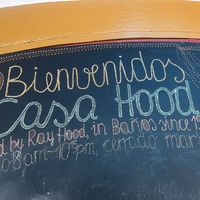 Bienvenidos
Casa Hood
by Ray Hood, in Baños since
8am-10pm, cerrado